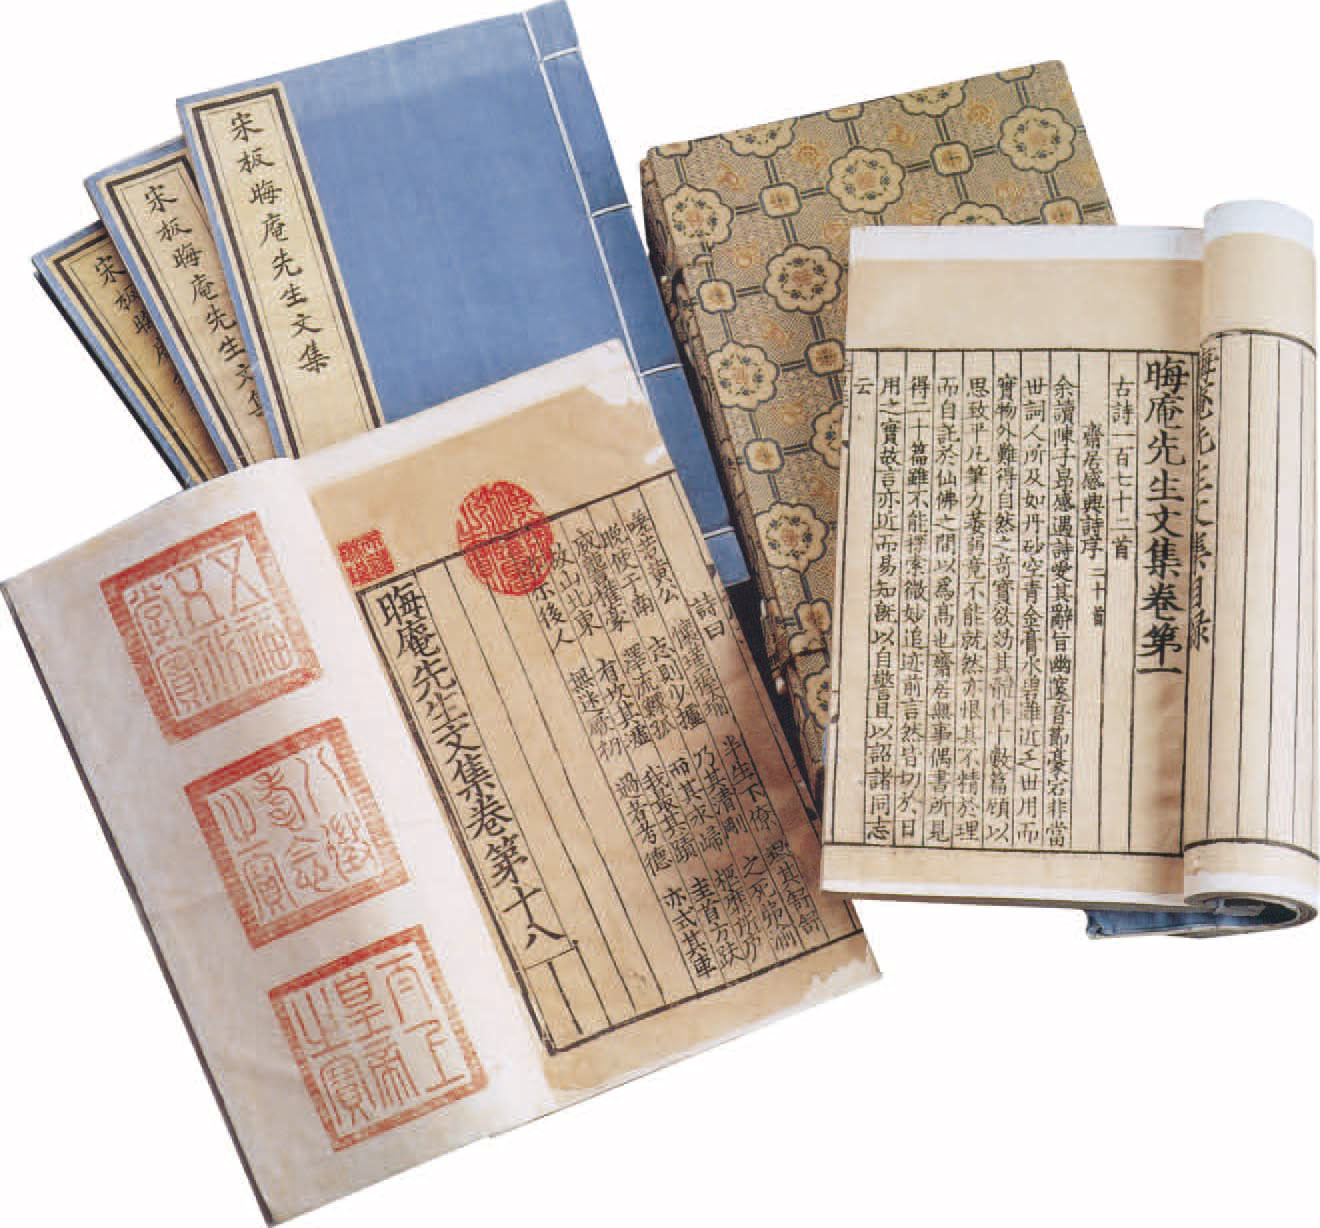 宋板晦庵先生文集
宋板晦庵先生文集
宋板晦庵
晦庵先生文集目錄
晦庵先生文集卷第一
古詩一百七十二首
齋居感興詩序 二十首
余讀陳子昂感遇詩愛其辭旨幽邃音節豪宕非當
世詞人所及如丹砂空青金膏水碧雖近乏世用而
實物外難得自然之奇寶欲効其體作十數篇顧以
思致平凡筆力萎弱竟不能就然亦恨其不精於理
而自託於仙佛之間以爲高也齋居無事偶書所見
得二十篇雖不能探索微妙追迹前言然皆切於日
用之實故言亦近而易知既以自警且以詒諸同志
云
詩曰
嗟若黄公 懷瑾握瑜 半生下僚 其舒舒
使于南 志則少攄 乃其清剛 之死弗渝
威譽摧豪 澤亦綏孤 而其永歸
故山北東 有坎其墟 我掇其蹟 圭首方趺
示後人 無述厥初 過者考德 亦式其車
晦庵先生文集卷第十八
乾隆御覽之寶
五福五代堂寶
八徵耄念之寶
太上皇帝之寶